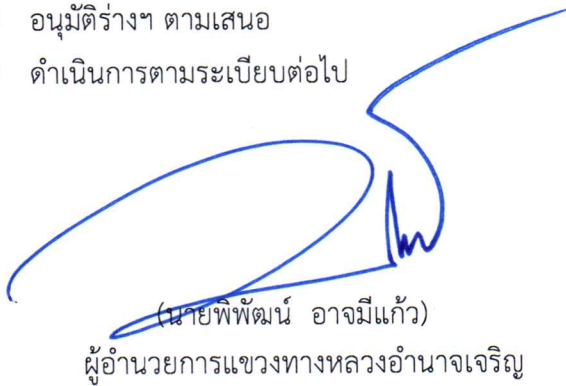 อนุมัติร่างฯ ตามเสนอ
ดำเนินการตามระเบียบต่อไป
(นายพิพัฒน์ อาจมีแก้ว)
ผู้อำนวยการแขวงทางหลวงอำนาจเจริญ